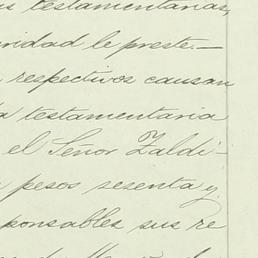 testamentarias,
ridad le preste.—
respectivos causan
testamentaria
el Señor Zaldi-
pesos sesenta y
ponsables sus re